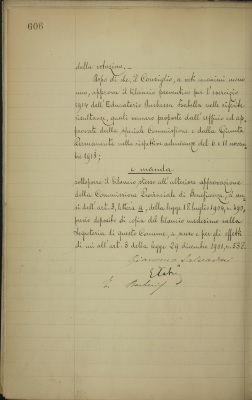 606
della votazione,
Dopo di che, il Consiglio, a voti unanimi meno
uno, approva il bilancio preventivo per l'esercizio
1914 dell'Educatorio Duchessa Isabella nelle rispettive
risultanze, quali vennero proposte dall'Ufficio ed ap-
provate dalla speciale Commissione e dalla Giunta
Permanente nelle rispettive adunanze del 6 e 11 novem-
bre 1913;
e manda
sottoporre il bilancio stesso all'ulteriore approvazione
della Commissione Provinciale di Beneficenza, a sen-
si dell'art. 3, lettera a, della legge 18 luglio 1904, n. 390,
previo deposito di copia del bilancio medesimo nella
Segreteria di questo Comune, a senso e per gli effetti
di cui all'art. 3 della legge 29 dicembre 1901, n. 552.